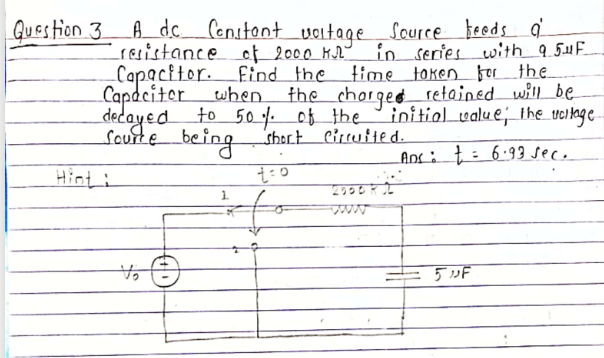 Question 3 A dc Constant voltage Source feeds a
resistance of 2000 KΩ in series with a 5uF
Capacitor. Find the time taken for the
Capacitor when the charged retained will be
decayed to 50 % of the initial value; the voltage
Source being short circuited.
Ans: t = 6.93 sec.
Hint: t=0
1 2000 KΩ
2
V₀ + - 5 uF